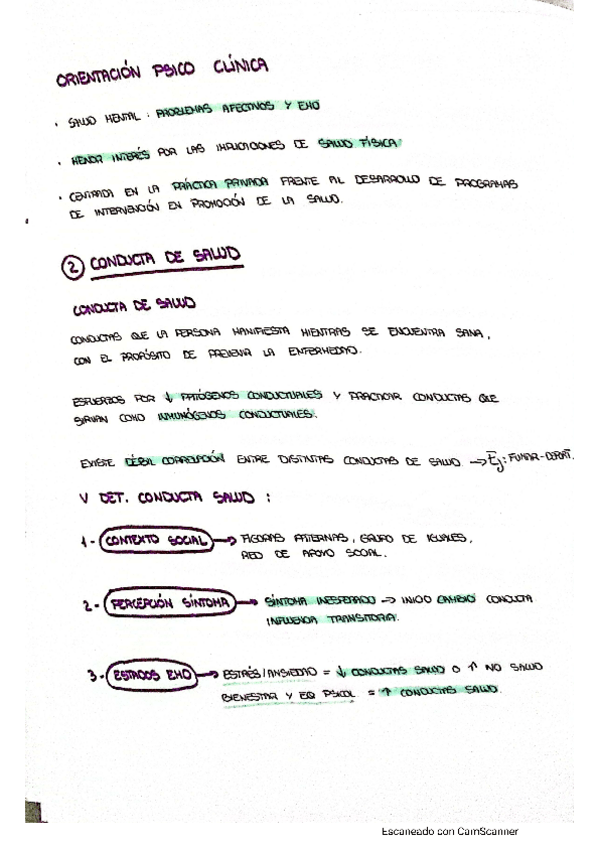 ORIENTACIÓN PSICO CLÍNICA
• SALUD MENTAL : PROBLEMAS AFECTIVOS Y EMO
• MENOR INTERÉS POR LAS IMPLICACIONES DE SALUD FÍSICA
• CENTRADA EN LA PRÁCTICA PRIVADA FRENTE AL DESARROLLO DE PROGRAMAS
DE INTERVENCIÓN EN PROMOCIÓN DE LA SALUD.
2 CONDUCTA DE SALUD
CONDUCTA DE SALUD
CONDUCTAS QUE LA PERSONA MANIFIESTA MIENTRAS SE ENCUENTRA SANA,
CON EL PROPÓSITO DE PREVENIR LA ENFERMEDAD.
ESFUERZOS POR ↓ PATÓGENOS CONDUCTUALES Y PRACTICAR CONDUCTAS QUE
SIRVAN COMO INMUNÓGENOS CONDUCTUALES.
EXISTE DÉBIL CORRELACIÓN ENTRE DISTINTAS CONDUCTAS DE SALUD → Ej: FUMAR-DEPORT.
V DET. CONDUCTA SALUD :
1- CONTEXTO SOCIAL → FIGURAS PATERNAS, GRUPO DE IGUALES,
RED DE APOYO SOCIAL.
2- PERCEPCIÓN SÍNTOMA → SÍNTOMA INESPERADO → INICIO CAMBIO CONDUCTA
INFLUENCIA TRANSITORIA.
3- ESTADOS EMO → ESTRÉS/ANSIEDAD = ↓ CONDUCTAS SALUD O ↑ NO SALUD
BIENESTAR Y EQ PSICOL = ↑ CONDUCTAS SALUD.
Escaneado con CamScanner